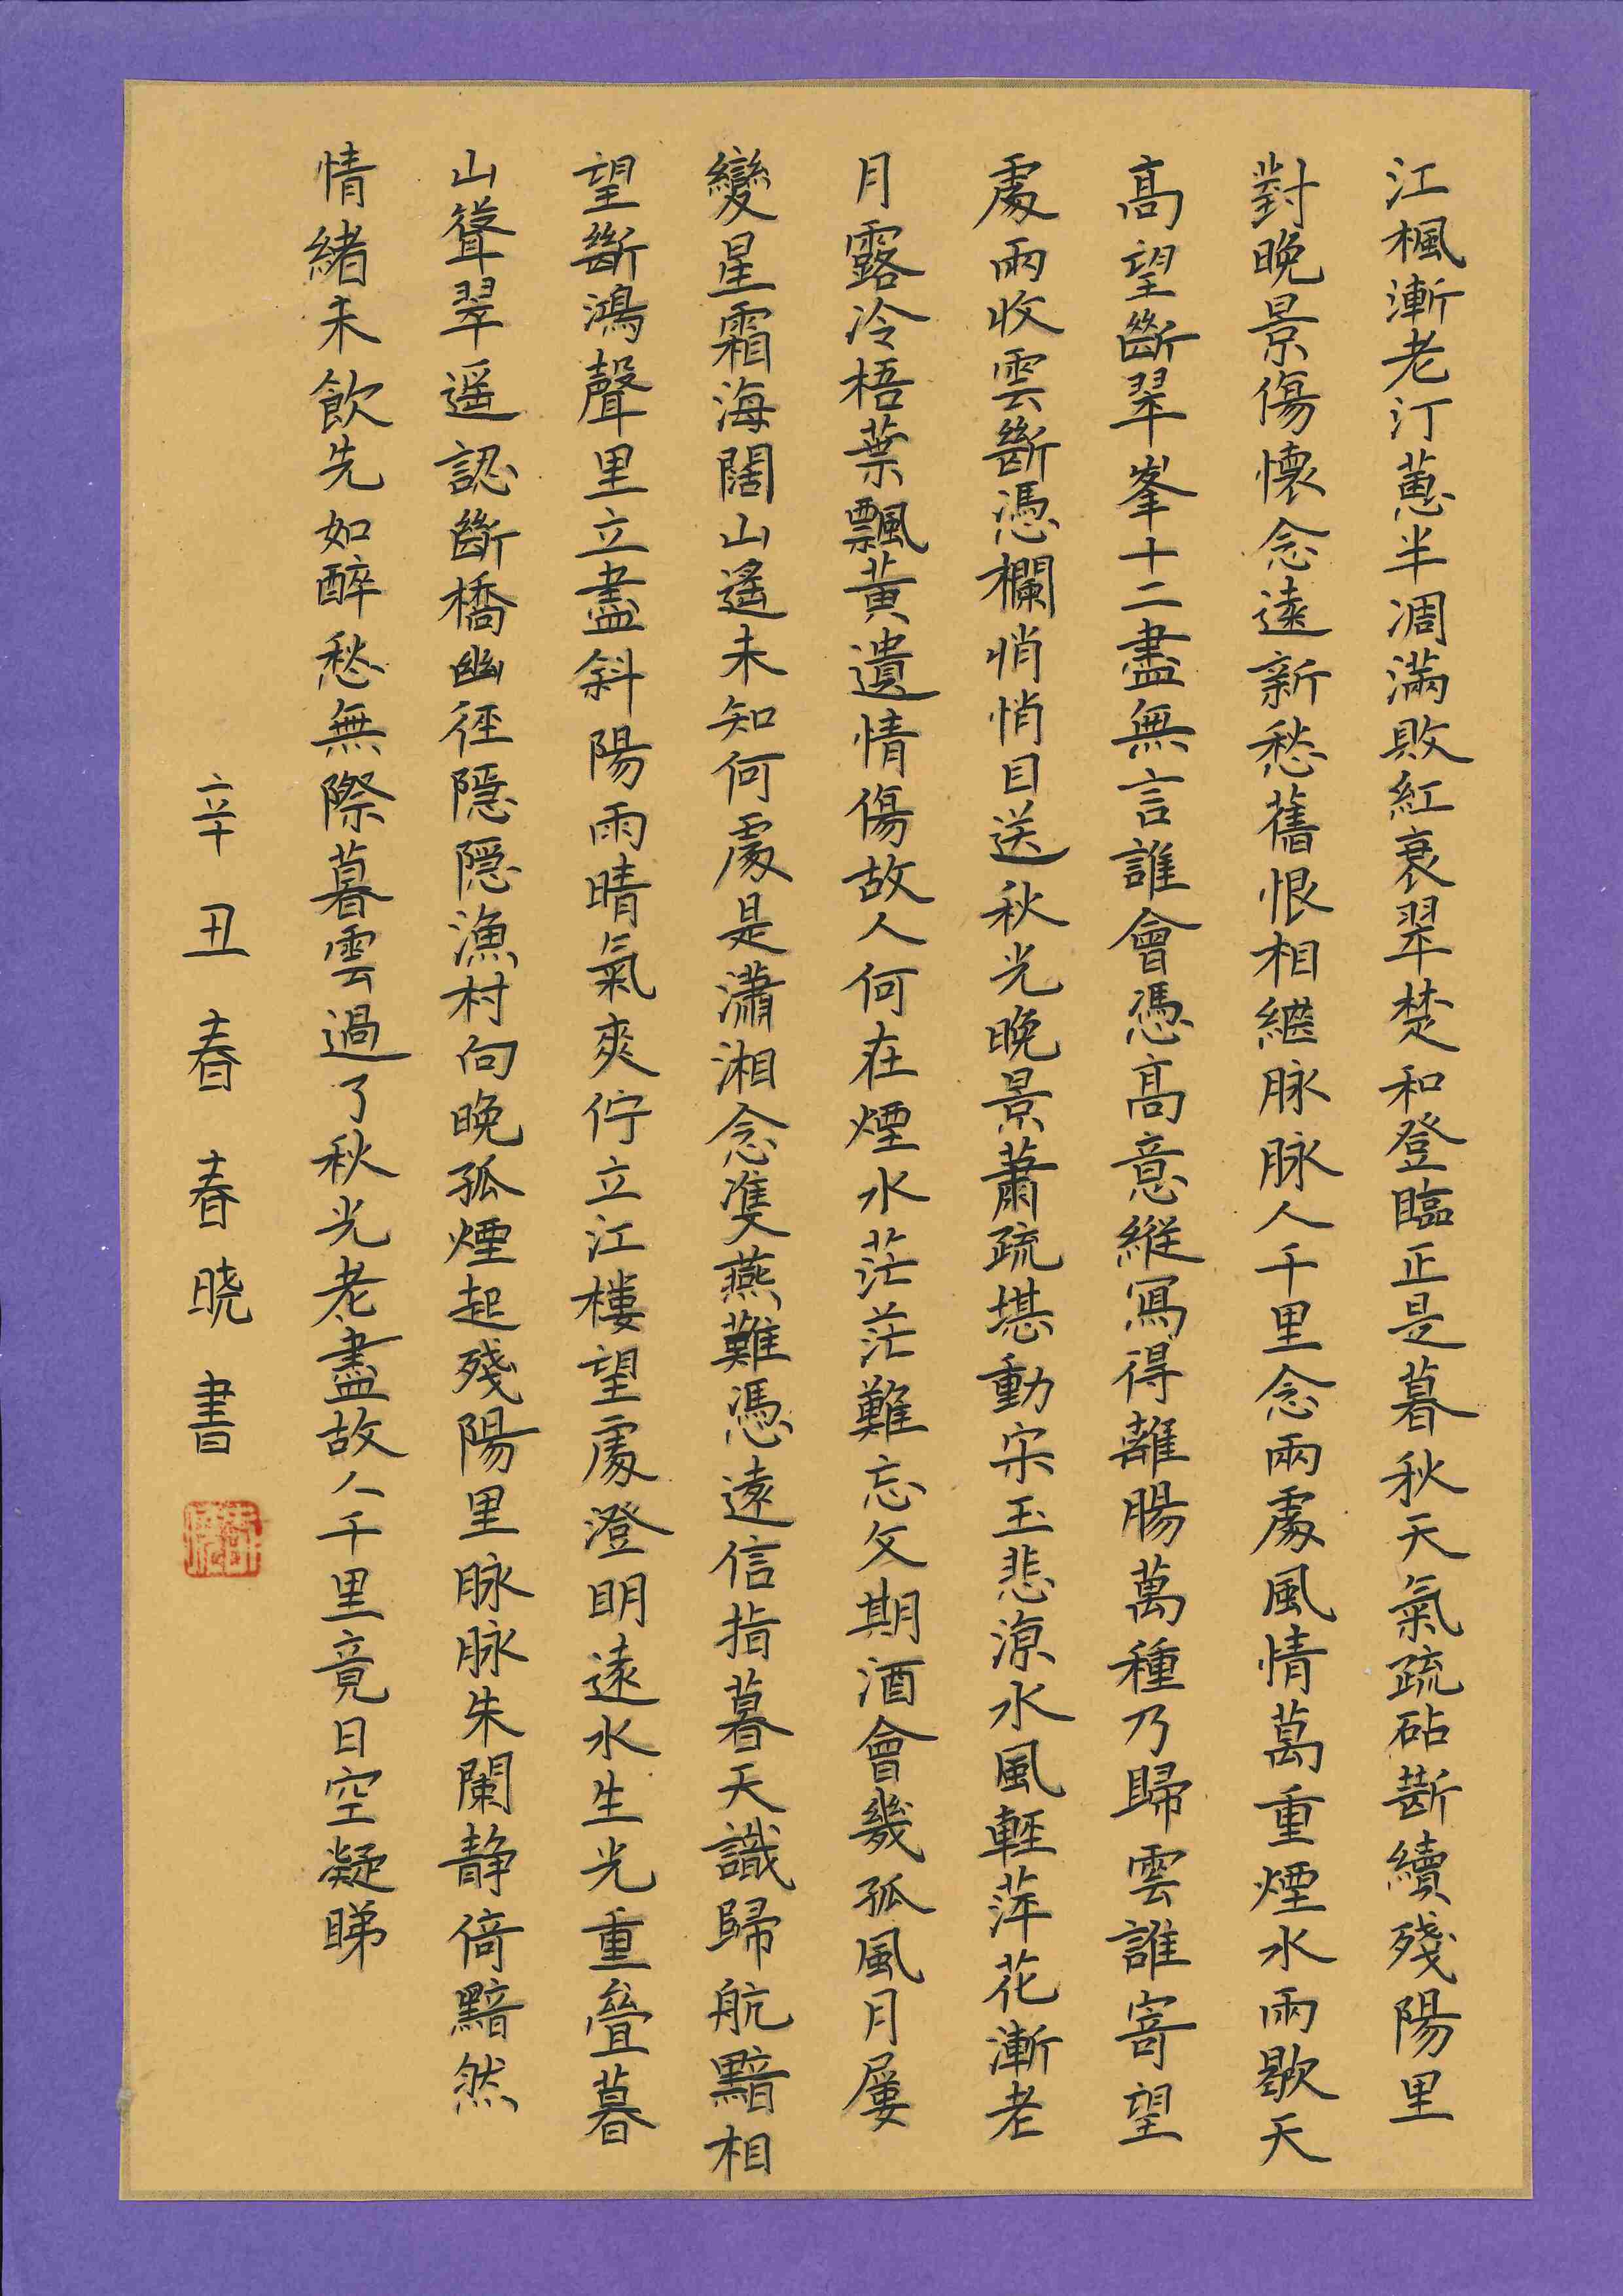 江楓漸老汀蕙半凋滿敗紅衰翠楚和登臨正是暮秋天氣疏砧斷續殘陽里
對晚景傷懷念遠新愁舊恨相繼脉脉人千里念兩處風情萬重煙水雨歇天
高望斷翠峯十二盡無言誰會憑高意縱寫得離腸萬種乃歸雲誰寄望
處雨收雲斷憑欄悄悄目送秋光晚景蕭疏堪動宋玉悲涼水風輕萍花漸老
月露冷梧葉飄黃遺情傷故人何在煙水茫茫難忘文期酒會幾孤風月屢
變星霜海闊山遙未知何處是瀟湘念雙燕難憑遠信指暮天識歸航黯相
望斷鴻聲里立盡斜陽雨晴氣爽佇立江樓望處澄明遠水生光重疊暮
山聳翠遥認斷橋幽徑隱隱漁村向晚孤煙起殘陽里脉脉朱闌静倚黯然
情緒未飲先如醉愁無際暮雲過了秋光老盡故人千里竟日空凝睇
辛丑春春晓書